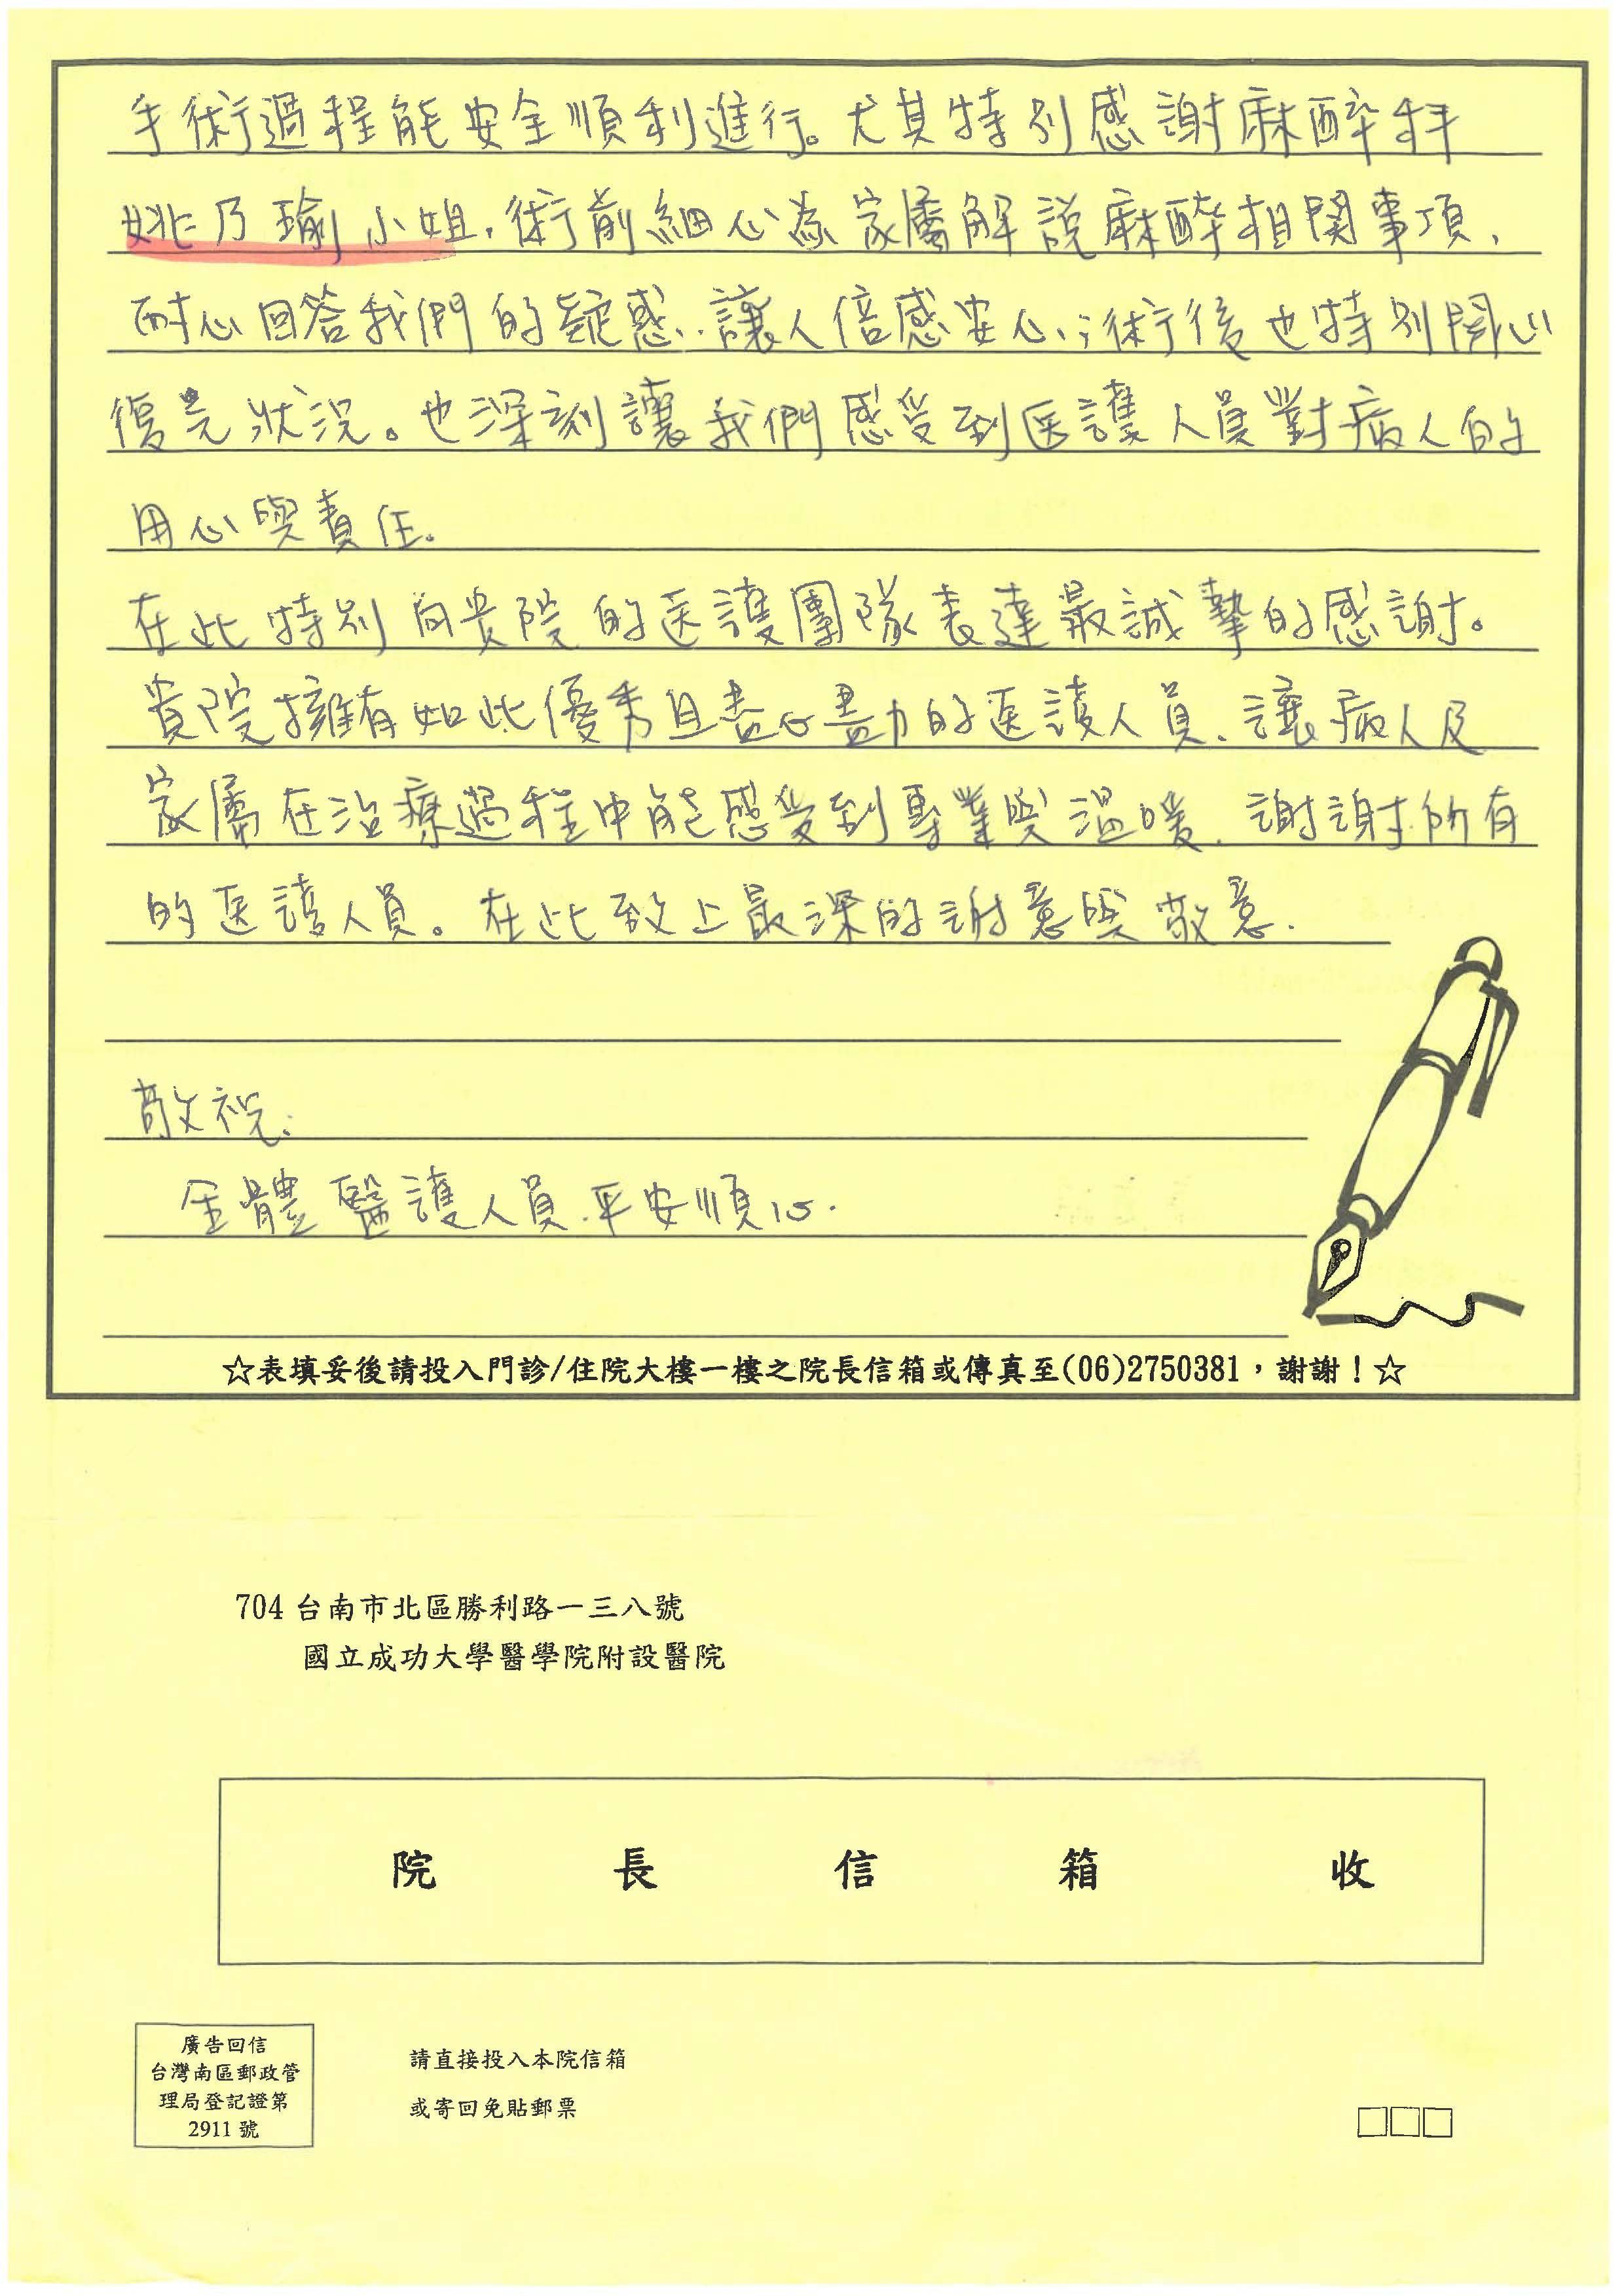 手術過程能安全順利進行。尤其特別感謝麻醉科
姚乃瑜小姐,術前細心為家屬解說麻醉相關事項、
耐心回答我們的疑惑,讓人倍感安心;術後也特別關心
復元狀況。也深刻讓我們感受到医護人員對病人的
用心與責任。
在此特別向貴院的医護團隊表達最誠摯的感謝。
貴院擁有如此優秀且盡心盡力的医護人員,讓病人及
家屬在治療過程中能感受到專業與溫暖,謝謝所有
的医護人員。在此致上最深的謝意與敬意.
敬祝:
全體醫護人員.平安順心.
☆表填妥後請投入門診/住院大樓一樓之院長信箱或傳真至(06)2750381,謝謝!☆
704 台南市北區勝利路一三八號
國立成功大學醫學院附設醫院
院長信箱收
廣告回信
台灣南區郵政管
理局登記證第
2911 號
請直接投入本院信箱
或寄回免貼郵票
□□□